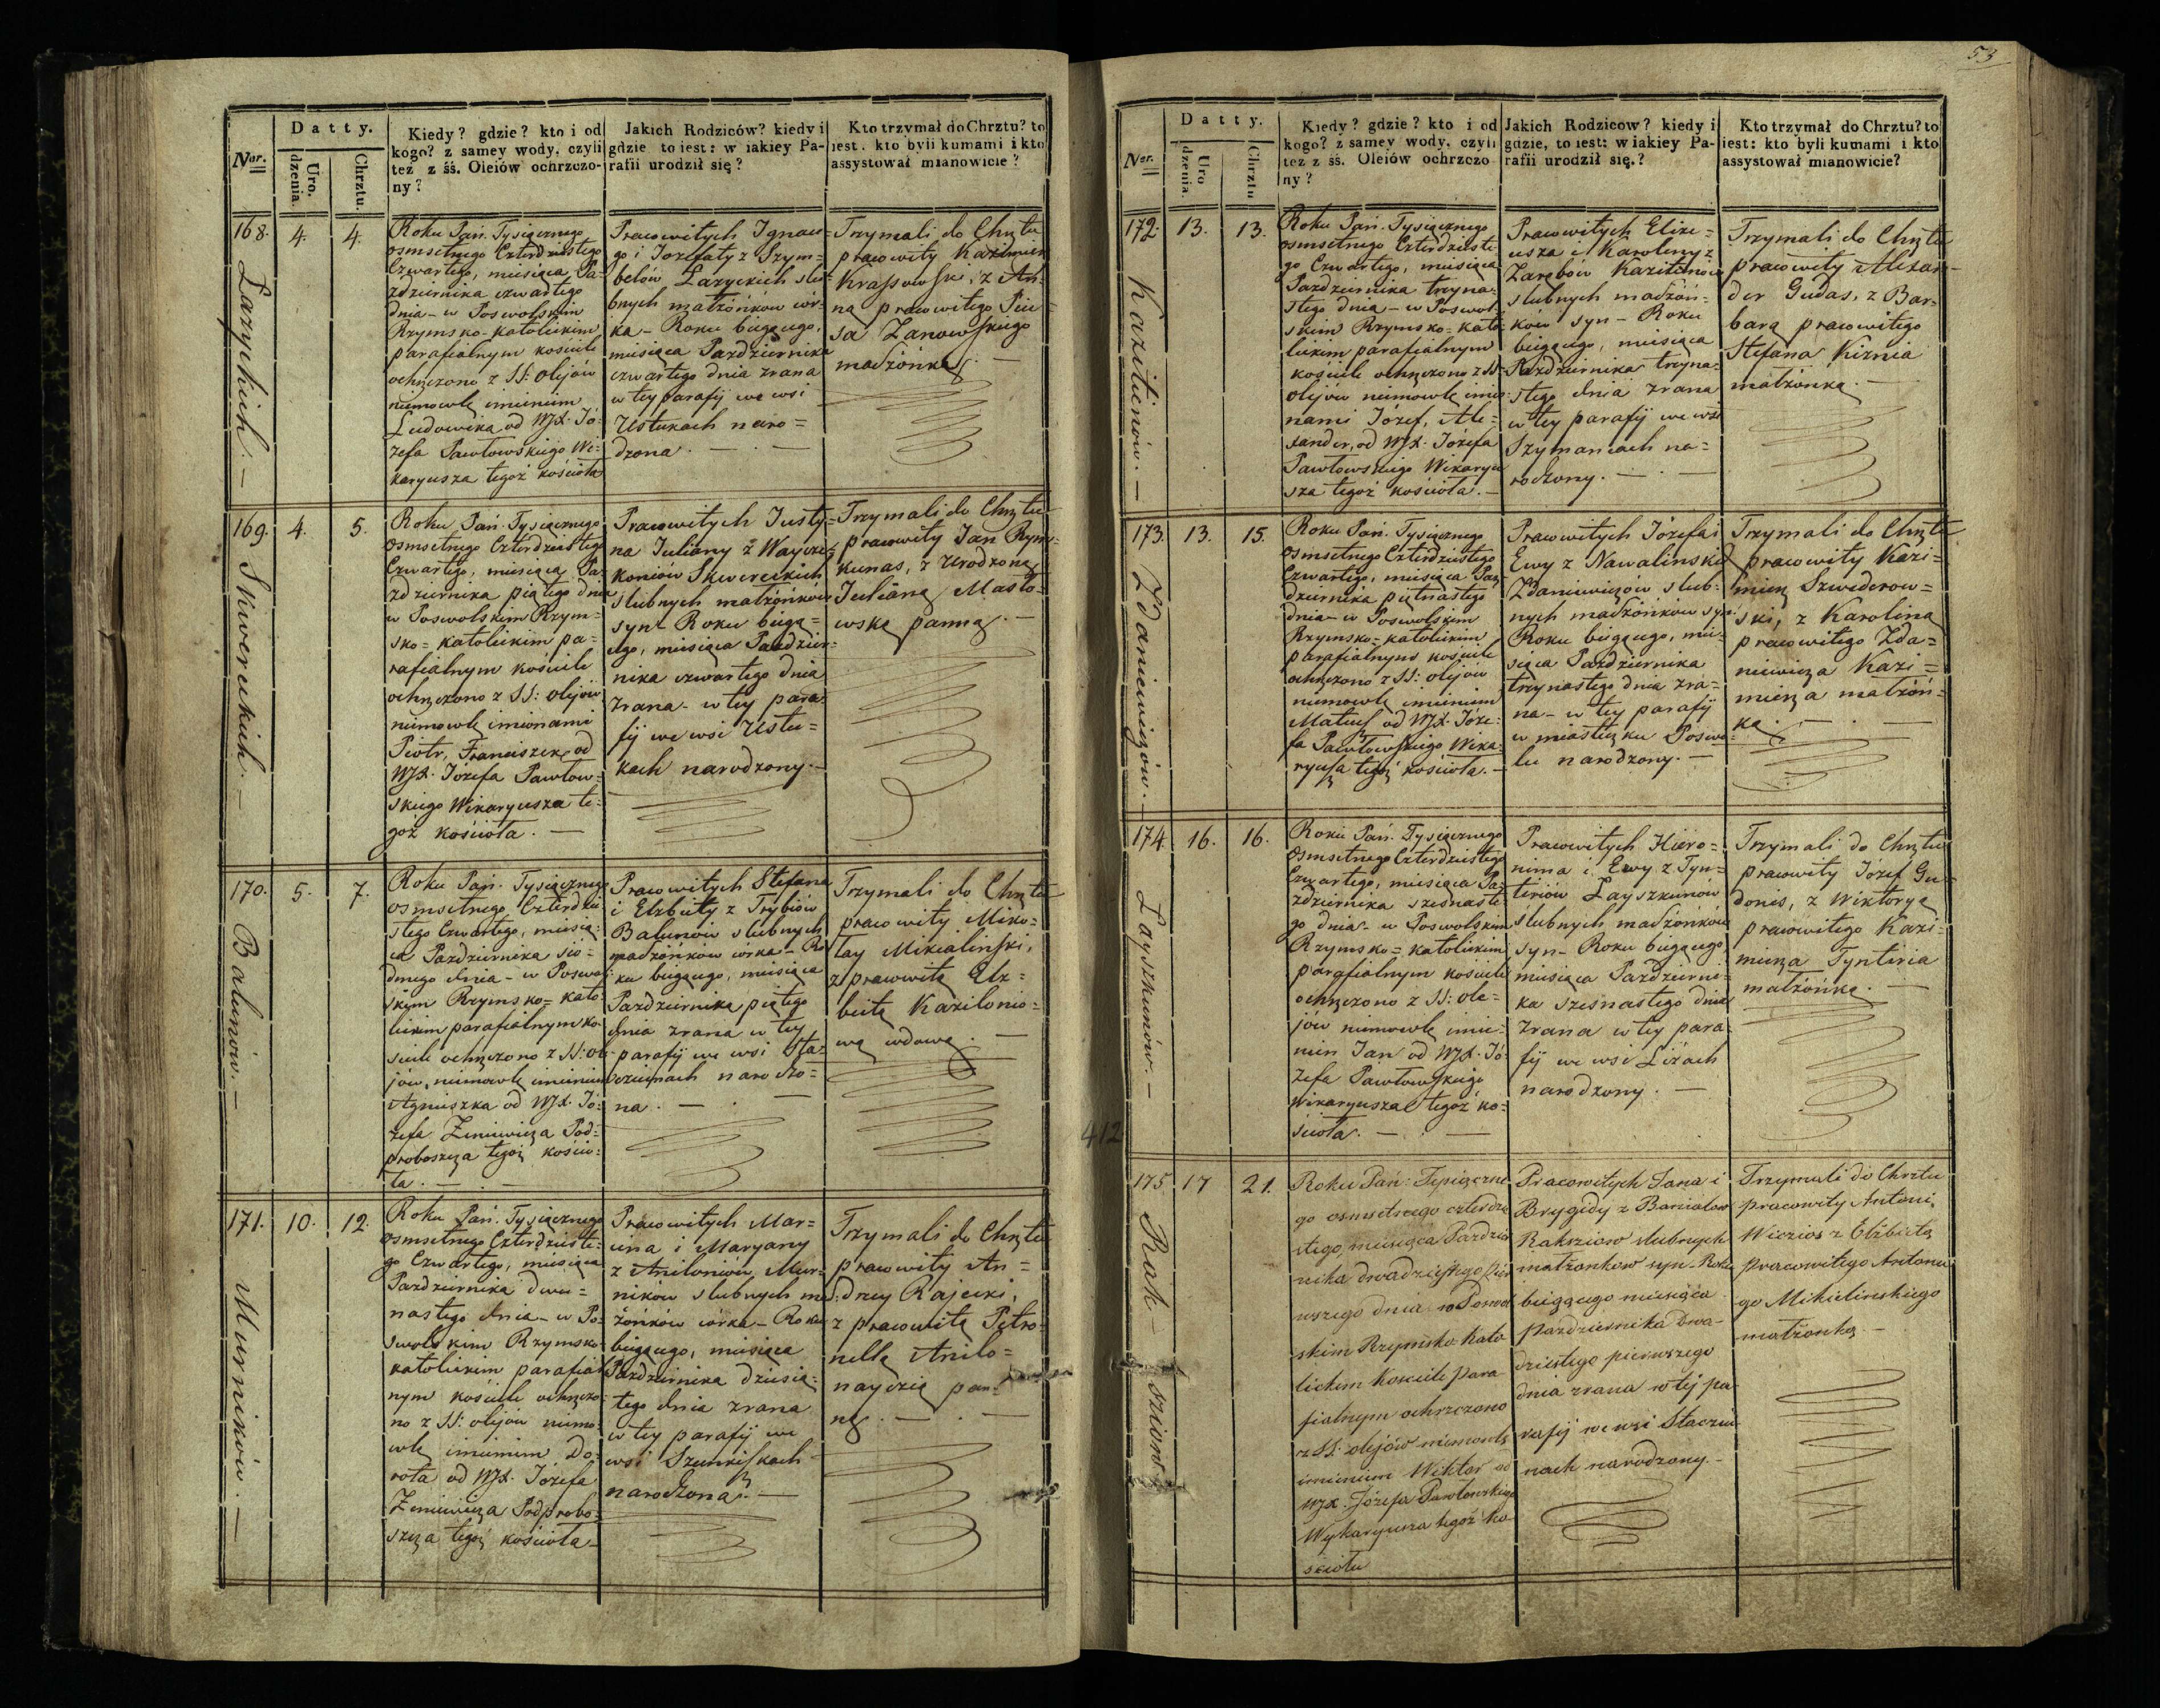 Datty.
Nor.
Uro.
dzenia.
Chrztu.
Kiedy? gdzie? kto i od
kogo? z samey wody, czyli
też z śś. Oleiów ochrzczo-
ny?
Jakich Rodziców? kiedy i
gdzie to iest: w iakiey Pa-
rafii urodził się?
Kto trzymał do Chrztu? to
iest. kto byli kumami i kto
assystował mianowicie?
168.
Łazyckich. —
4.
4.
Roku Pań. Tysiącznego
osmsetnego Czterdziestego
Czwartego, miesiąca Pa-
zdziernika czwartego
dnia - w Poswolskim
Rzymsko-katolickim
parafialnym kościele
ochrzczono z SS: olejów
niemowlę imieniem
Ludowika od WJX. Jó-
zefa Pawłowskiego Wi-
karyusza tegoż kościoła
Pracowitych Ignace-
go i Jozefaty z Szym-
belów Łazyckich slu-
bnych małżonków cór-
ka - Roku biegącego,
miesiąca Pazdziernika
czwartego dnia zrana
w tey parafij we wsi
Ustukach naro=
dzona. —
Trzymali do Chrztu
pracowity Kazimierz
Krassowski, z An-
ną pracowitego Piu-
sa Zanowskiego
małżonką. —
169.
Skwereckich. —
4.
5.
Roku Pań. Tysiącznego
Osmsetnego Czterdziestego
Czwartego, miesiąca Pa-
zdziernika piątego dnia
w Poswolskim Rzym-
sko=katolickim pa=
rafialnym kościele
ochrzczono z SS: olejów
niemowlę imionami
Piotr, Franciszek, od
WJX. Józefa Pawłow-
skiego Wikaryusza te-
goż kościoła. —
Pracowitych Justy-
na Juliany z Waycze-
koniów Skwereckich
slubnych małżonków
syn - Roku biegą=
cego, miesiąca Pazdzier-
nika czwartego dnia
zrana - w tey para-
fij we wsi Ustu=
kach narodzony. —
Trzymali do Chrztu
pracowity Jan Rym-
kunas, z Urodzoną
Julianą Masło-
wską panną. —
170.
Balunów. —
5.
7.
Roku Pań. Tysiącznego
osmsetnego Czterdzie
stego Czwartego, miesią-
ca Pazdziernika sió=
dmego dnia - w Poswol
skim Rzymsko=kato
lickim parafialnym ko
ściele ochrzczono z SS: ole
jów, niemowlę imieniem
Agnieszka od WJX. Jó-
zefa Zeniewicza Pod-
proboszcza tegoż kościo-
ła. —
Pracowitych Stefana
i Elzbiety z Trybiów
Balunów slubnych
małżonków córka - Ro
ku biegącego, miesiąca
Pazdziernika piątego
dnia zrana w tey
parafij we wsi Sta-
czeiunach narodzo=
na. —
Trzymali do Chrztu
pracowity Miko=
łay Mikialinski,
z pracowitą Elz=
bietą Kazilonio=
wą wdową. —
171.
Murników. —
10.
12.
Roku Pań. Tysiącznego
osmsetnego Czterdzieste-
go Czwartego, miesiąca
Pazdziernika dwu=
nastego dnia - w Po-
swolskim Rzymsko
katolickim parafial
nym kościele ochrzczo-
no z SS: olejów niemo-
wlę imieniem Do-
rota od WJX. Józefa
Zeniewicza Podprobo-
szcza tegoż kościoła
Pracowitych Mar=
cina i Maryany
z Aniloniów Mur-
ników slubnych mał
żonków córka - Roku
biegącego, miesiąca
Pazdziernika dziesią-
tego dnia zrana
w tey parafij we
wsi Szunkiszkach
narodzona. —
Trzymali do Chrztu
pracowity An=
drzey Rajecki,
z pracowitą Petro-
nellą Anilo=
naycią pan-
ną. —
53
Datty.
Nor.
Uro
dzenia.
Chrztu
Kiedy? gdzie? kto i od
kogo? z samey wody, czyli
też z śś. Oleiów ochrzczo
ny?
Jakich Rodzicow? kiedy i
gdzie, to iest: w iakiey Pa-
rafii urodził się.?
Kto trzymał do Chrztu? to
iest: kto byli kumami i kto
assystował mianowicie?
172.
Kazileniów. —
13.
13.
Roku Pań. Tysiącznego
osmsetnego Czterdzieste
go Czwartego, miesiąca
Pazdziernika trzyna-
stego dnia - w Poswol-
skim Rzymsko=kato
lickim parafialnym
kościele ochrzczono z SS
olejów niemowlę imio-
nami Józef, Ale=
xander, od WJX. Józefa
Pawłowskiego Wikaryu
sza tegoż kościoła. —
Pracowitych Elize=
usza i Karoliny z
Zarębów Kazileniów
slubnych małżon-
ków syn - Roku
biegącego, miesiąca
Pazdziernika trzyna-
stego dnia zrana
w tey parafij we wsi
Szymańcach na=
rodzony. —
Trzymali do Chrztu
pracowity Alexan-
der Gudas, z Bar-
barą pracowitego
Stefana Kiznia
małżonką. —
173.
Zdaniewiczów. —
13.
15.
Roku Pań. Tysiącznego
Osmsetnego Czterdziestego
Czwartego, miesiąca Paz
dziernika piętnastego
dnia - w Poswolskim
Rzymsko=katolickim
parafialnym kościele
ochrzczono z SS: olejów
niemowlę imieniem
Mateusz od WJX. Józe-
fa Pawłowskiego Wika-
ryusza tegoż kościoła. —
Pracowitych Józefa i
Ewy z Nawalinskich
Zdaniewiczów slub-
nych małżonków syn
Roku biegącego, mie-
siąca Pazdziernika
trzynastego dnia zra=
na - w tey parafij
w miasteczku Poswo-
lu narodzony. —
Trzymali do Chrztu
pracowity Kazi=
mierz Szwederow=
ski, z Karoliną
pracowitego Zda=
niewicza Kazi=
mierza małżon-
ką. —
174.
Łayszkunów. —
16.
16.
Roku Pań. Tysiącznego
Osmsetnego Czterdziestego
Czwartego, miesiąca Pa-
zdziernika szesnaste
go dnia - w Poswolskim
Rzymsko=katolickim
parafialnym kościele
ochrzczono z SS: ole=
jów niemowlę imie-
niem Jan od WJX. Jó-
zefa Pawłowskiego
Wikaryusza tegoż ko=
ścioła. —
Pracowitych Hiero=
nima i Ewy z Tyn=
teriów Łayszkunów
slubnych małżonków
syn - Roku biegącego
miesiąca Pazdzierni-
ka szesnastego dnia
zrana w tey para
fij we wsi Liżach
narodzony. —
Trzymali do Chrztu
pracowity Józef Gu-
donis, z Wiktoryą
pracowitego Kazi-
mierza Tyntiria
małżonką. —
412
175.
Rak—sziow
17
21.
Roku Pań: Tysiączne
go osmsetnego czterdzie
stego, miesiąca Pazdzier
nika dwadziestego pier
wszego dnia w Poswol
skim Rzymsko Kato
lickim Kosciele para
fialnym ochrzczono
z SS. olejów niemowle
imieniem Wiktor od
WJX. Józefa Pawłowskiego
Wykaryusza tegoż ko
scioła
Pracowitych Jana i
Brygidy z Baniolow
Raksziow slubnych
małżonkow syn - Roku
biegącego miesiąca
Pazdziernika Dwa-
dziestego pierwszego
dnia zrana w tej pa
rafij we wsi Staczu
nach narodzony. -
Trzymali do Chrztu
pracowity Antoni
Wiczios z Elżbietą
pracowitego Antonie
go Mikielinskiego
małżonką. -